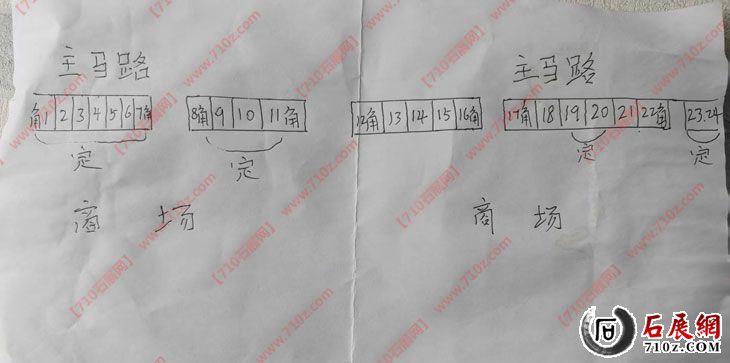 主马路 主马路
角1 2 3 4 5 6 7角 8角 9 10 11角 12角 13 14 15 16角 17角 18 19 20 21 22角 23.24
定 定 定 定
商 场 商 场
【710石展网】www.710z.com
石展網
710Z.COM